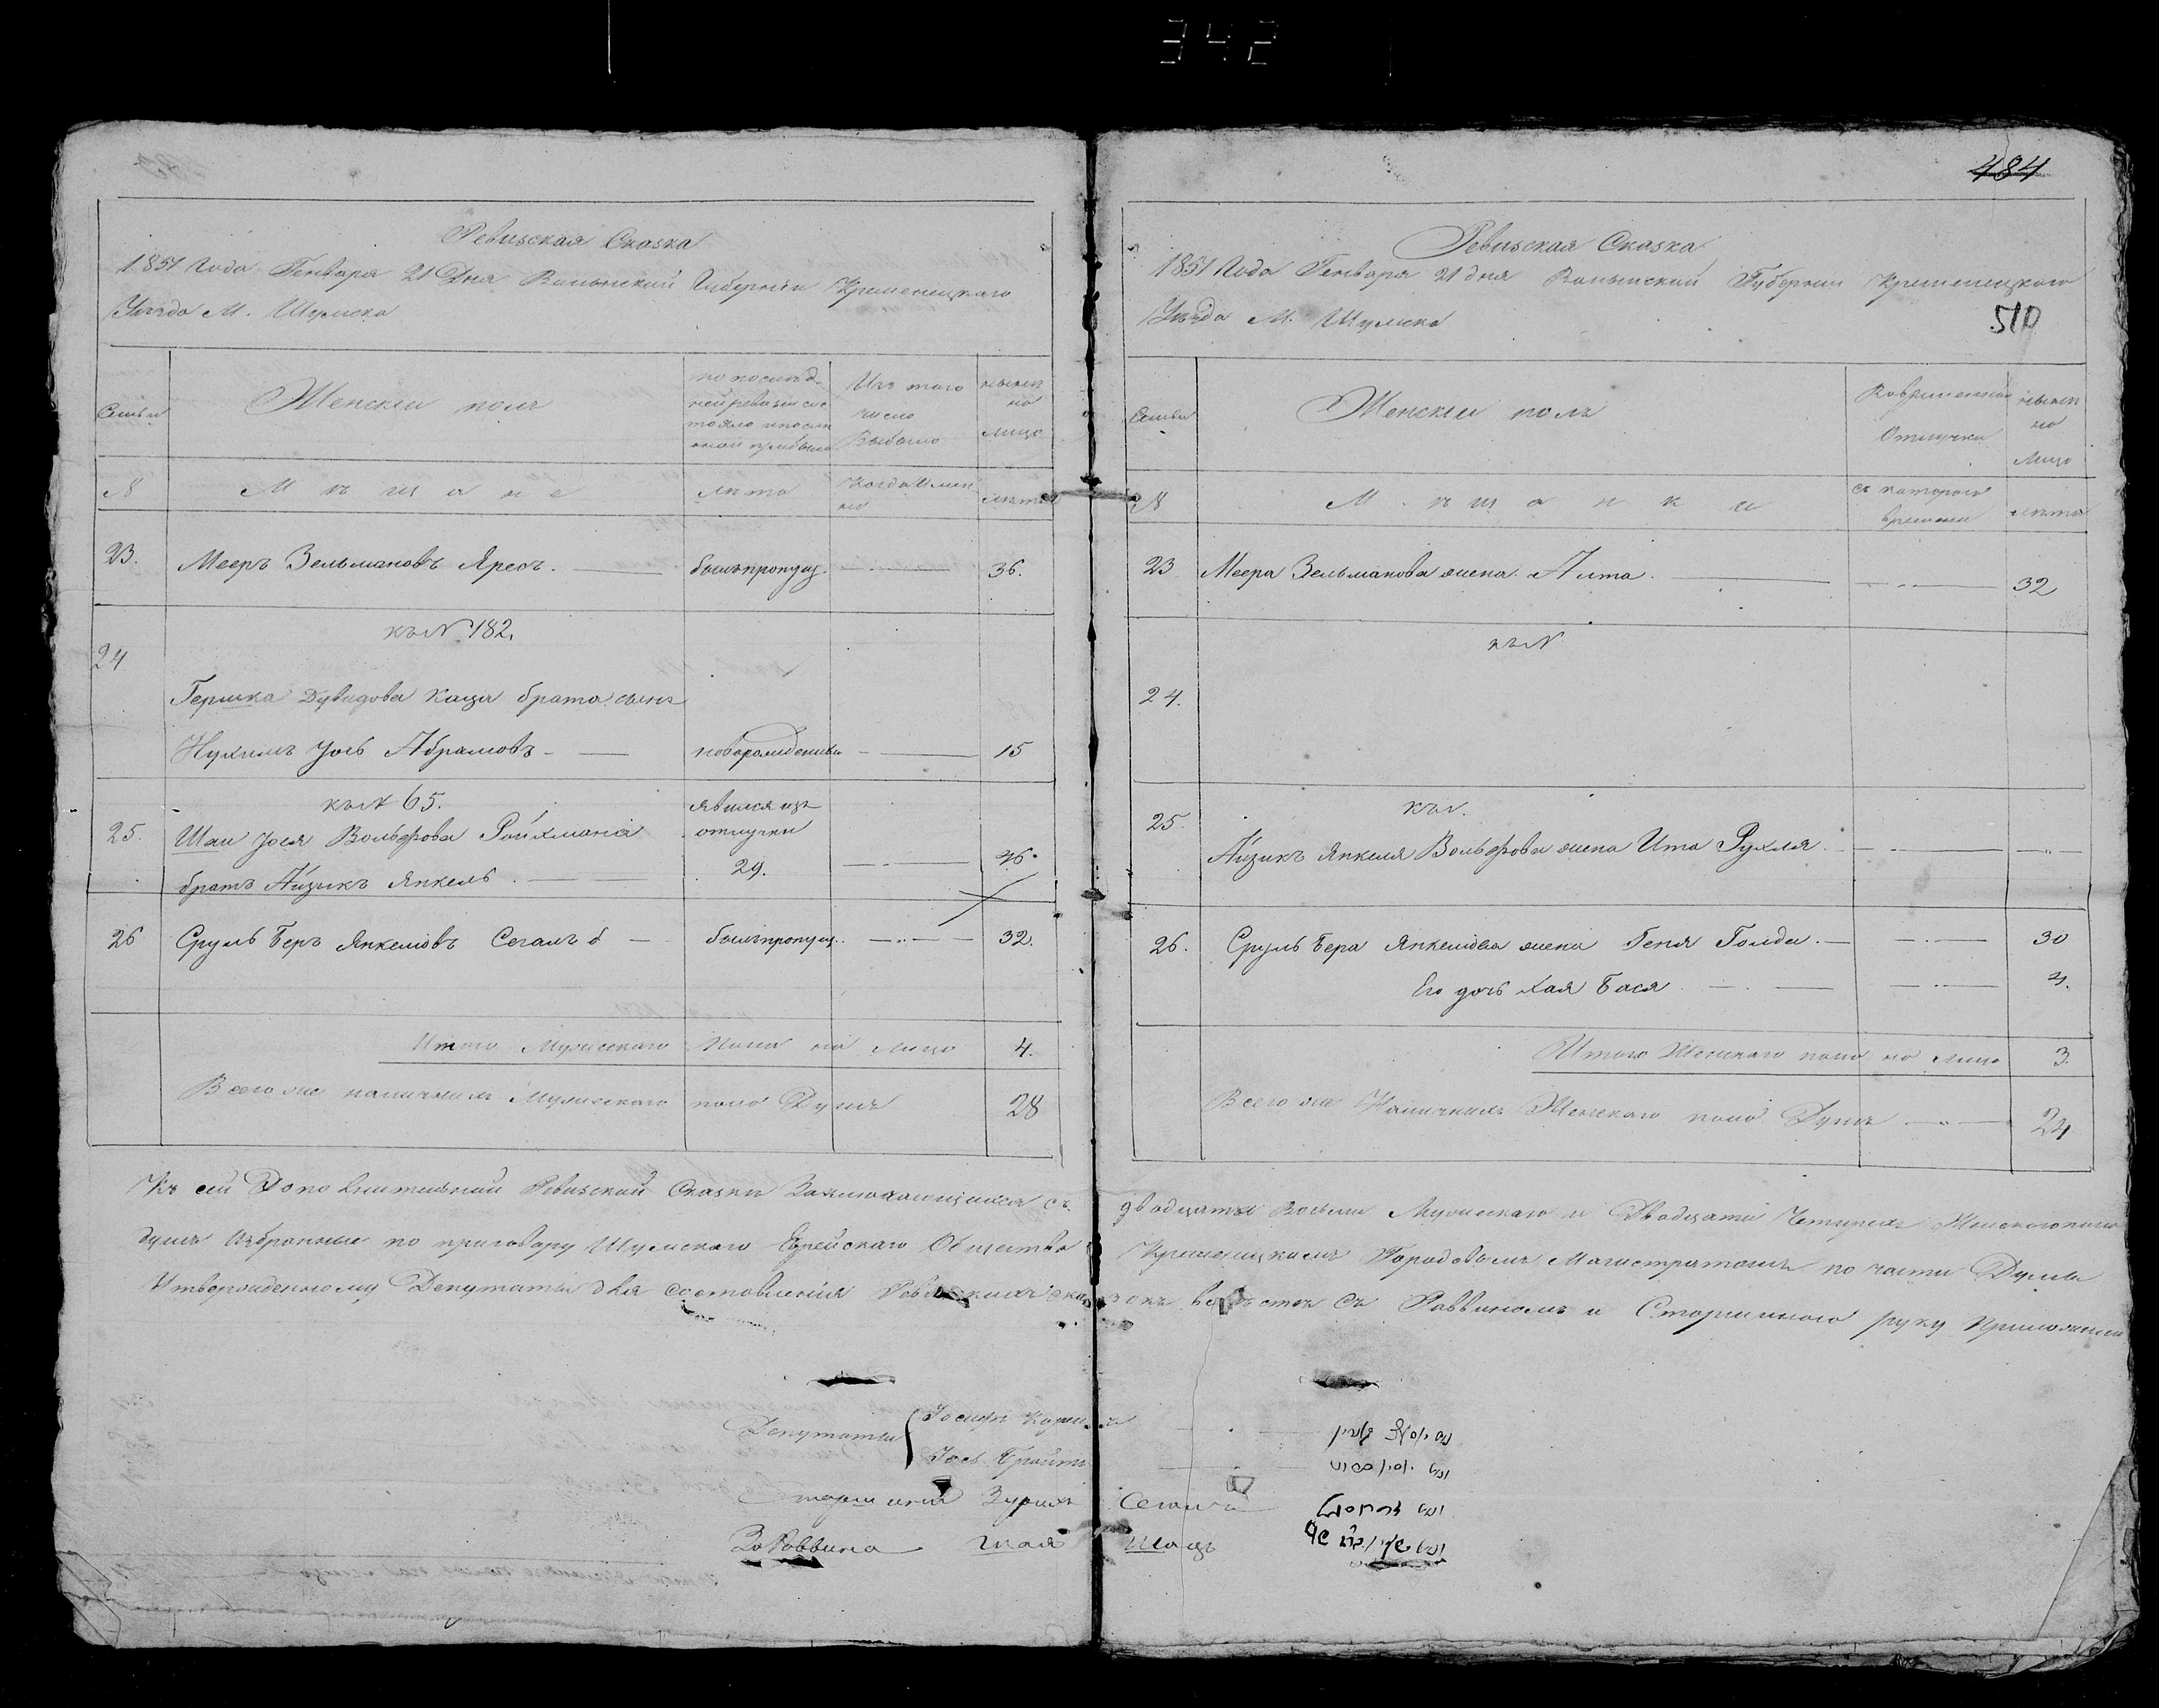 342
Ревизская Сказка
1851 Года Генваря 21 Дня Волынской Губернии Кременецкаго
Уезда М. Шумска
Семьи
Женскии полъ
по послед-
ней ревизии сос
тояло и после
оной прибыло
Изъ того
числа
Выбыло
ныне
на
лицо
N
Мещане
лета
Когда имен
но
лета
23. Мееръ Зельмановъ Яресъ. былъ пропущ. 36.
къ N 182.
24
Гершка Дувидова Каца брата сынъ
Нухимъ Іось Абрамовъ новорожденный 15
къ N 65. явился изъ
25. Шаи Іося Вольфова Ройхмана отлучки
братъ Айзикъ Янкель. 29. 46.
26 Сруль Беръ Янкелювъ Сегалъ б былъ пропущ. 32.
Итого Мужескаго Пола на лицо 4.
Всего же наличныхъ Мужескаго пола Душъ 28
484
Ревизская Сказка
1851 Года Генваря 21 дня Волынской Губернии Кременецкаго
Уезда М. Шумска
510
Семьи
Женскии полъ
Во временной
Отлучки
ныне
на
Лицо
N
Мещанки
съ котораго
времени
лета
23 Меера Зельманова жена Алта. 32
къ N
24.
къ N.
25.
Айзикъ Янкеля Вольфова жена Ита Рухля.
26. Сруль Бера Янкелюва жена Геня Голда. 30
Его дочь Хая Бася 3.
Итого Женскаго пола на лицо 3.
Всего же Наличныхъ Женскаго пола Душъ 24
Къ сей Дополнительной Ревизской Сказки Заключающихся съ двадцати Восьми Мужескаго и Двадцати Четырехъ Женскаго пола
душъ Избранные по приговору Шумскаго Еврейскаго Общества Кременецкимъ Городовымъ Магистратомъ по части Думы
Утвержденному Депутаты для составления Ревизскихъ сказокъ въ съ Раввиномъ и Старшиною руку Приложили
Депутаты Іосифъ
Іось
Старшина Зурихъ Сегалъ
За Раввина Шая Шацъ